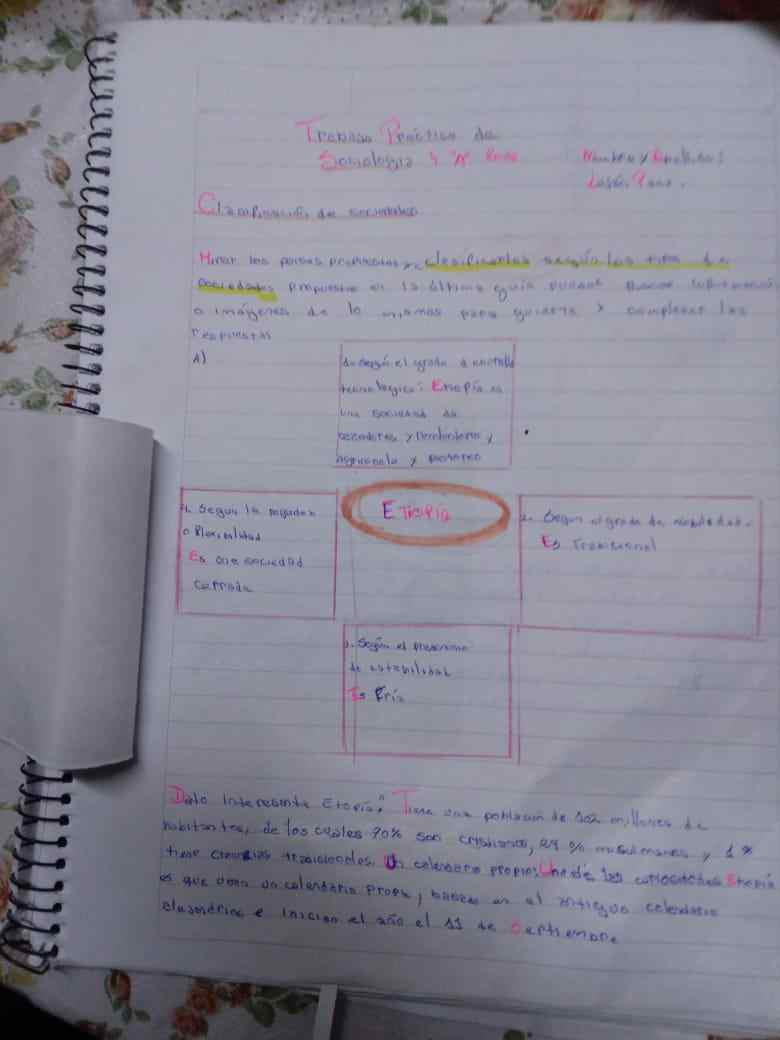 Trabajo Práctico de
Sociología 4 "A"
Clasificación de sociedades
Mirar los países propuestos, clasificarlos según los tipos de
sociedades propuesto en la última guía pueden buscar información
o imágenes de lo mismos para guiarse y completar las
respuestas
A)
según el grado d
tecnologico: Etiopía es
una sociedad de
recolectores y
y pastoreo
Según la
o Flexibilidad
Es una sociedad
cerrada
ETIOPÍA
2. Según el grado de
Es Tradicional
3. Según el
de estabilidad
Es Fría
Dato interesante Etiopía: Tiene una población de 102 millones de
habitantes, de los cuales 70% son cristianos, 29 % musulmanes y 1 %
tiene creencias tradicionales. Un calendario propio: Una de las Etiopía
es que tiene un calendario propio, en el antiguo calendario
e inician el año el 11 de Septiembre